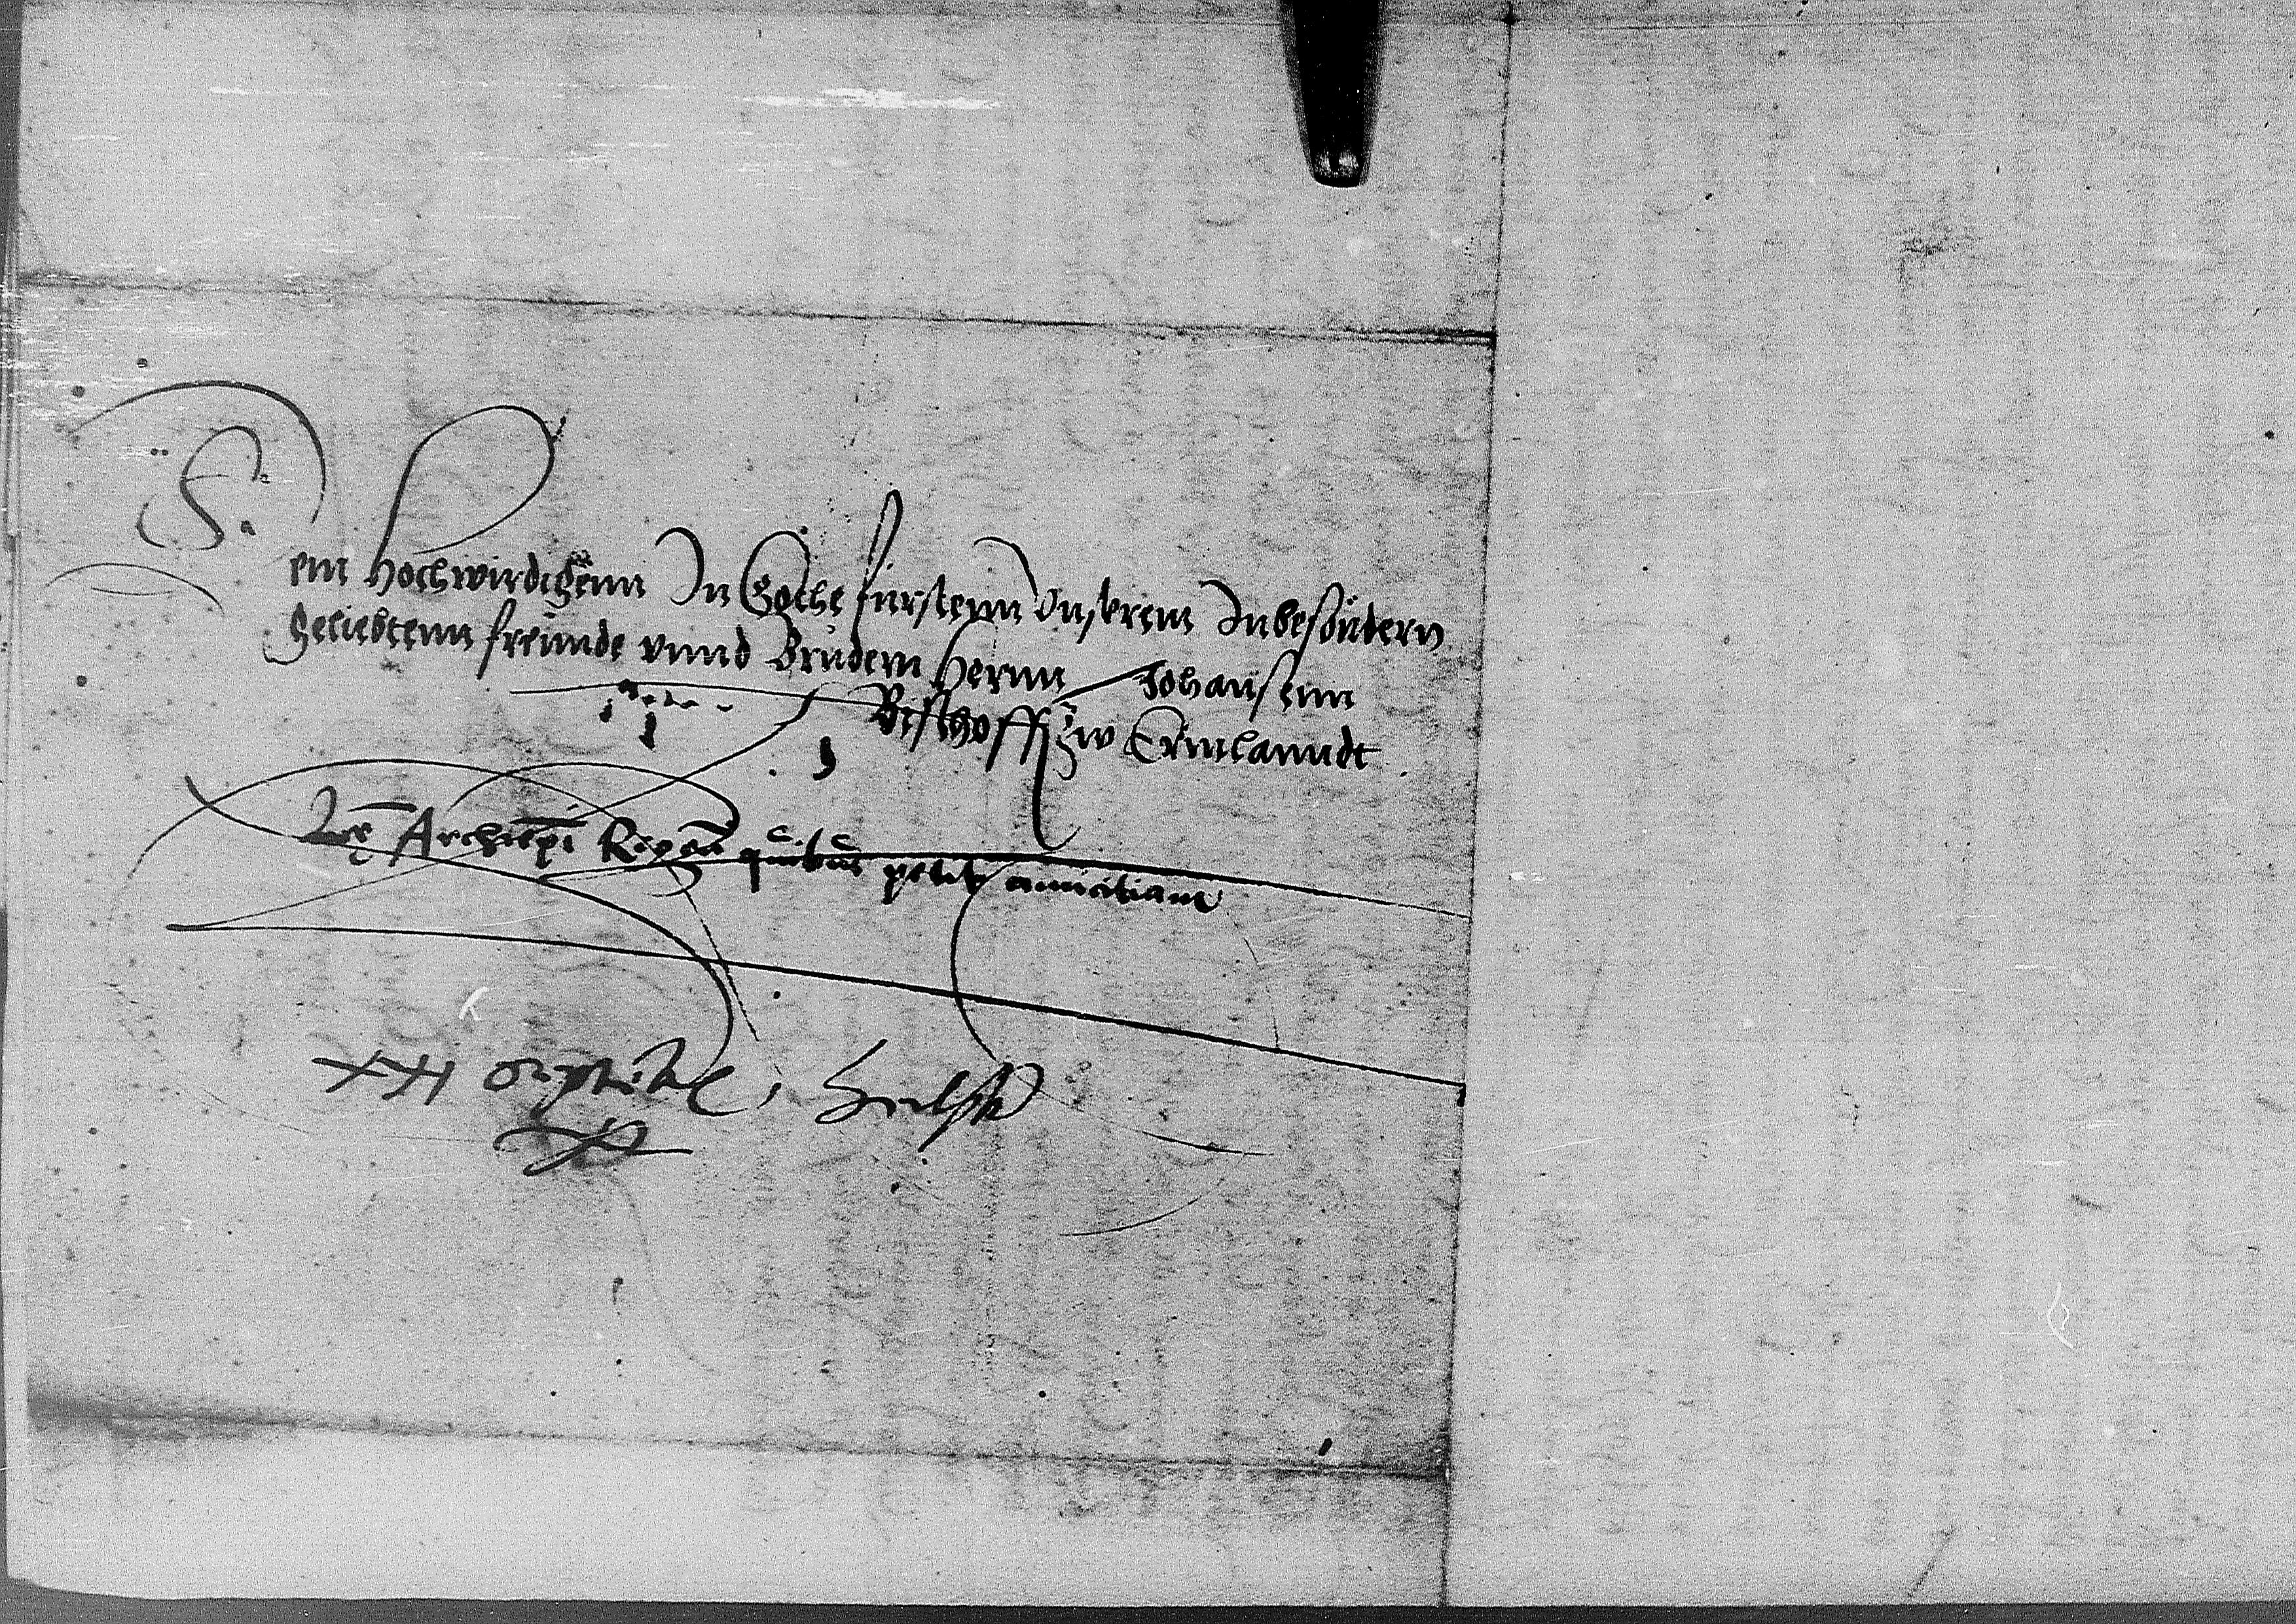 Dem hochwirdigenn In Gothe fürstenn Vnserem Inbesündern
geliebtenn freünde vnnd Brüdern Hernn Johansenn
Bischoff zw Ermlanndt
Lrę Archiepi Rigen quibus petit amicitiam
XXI